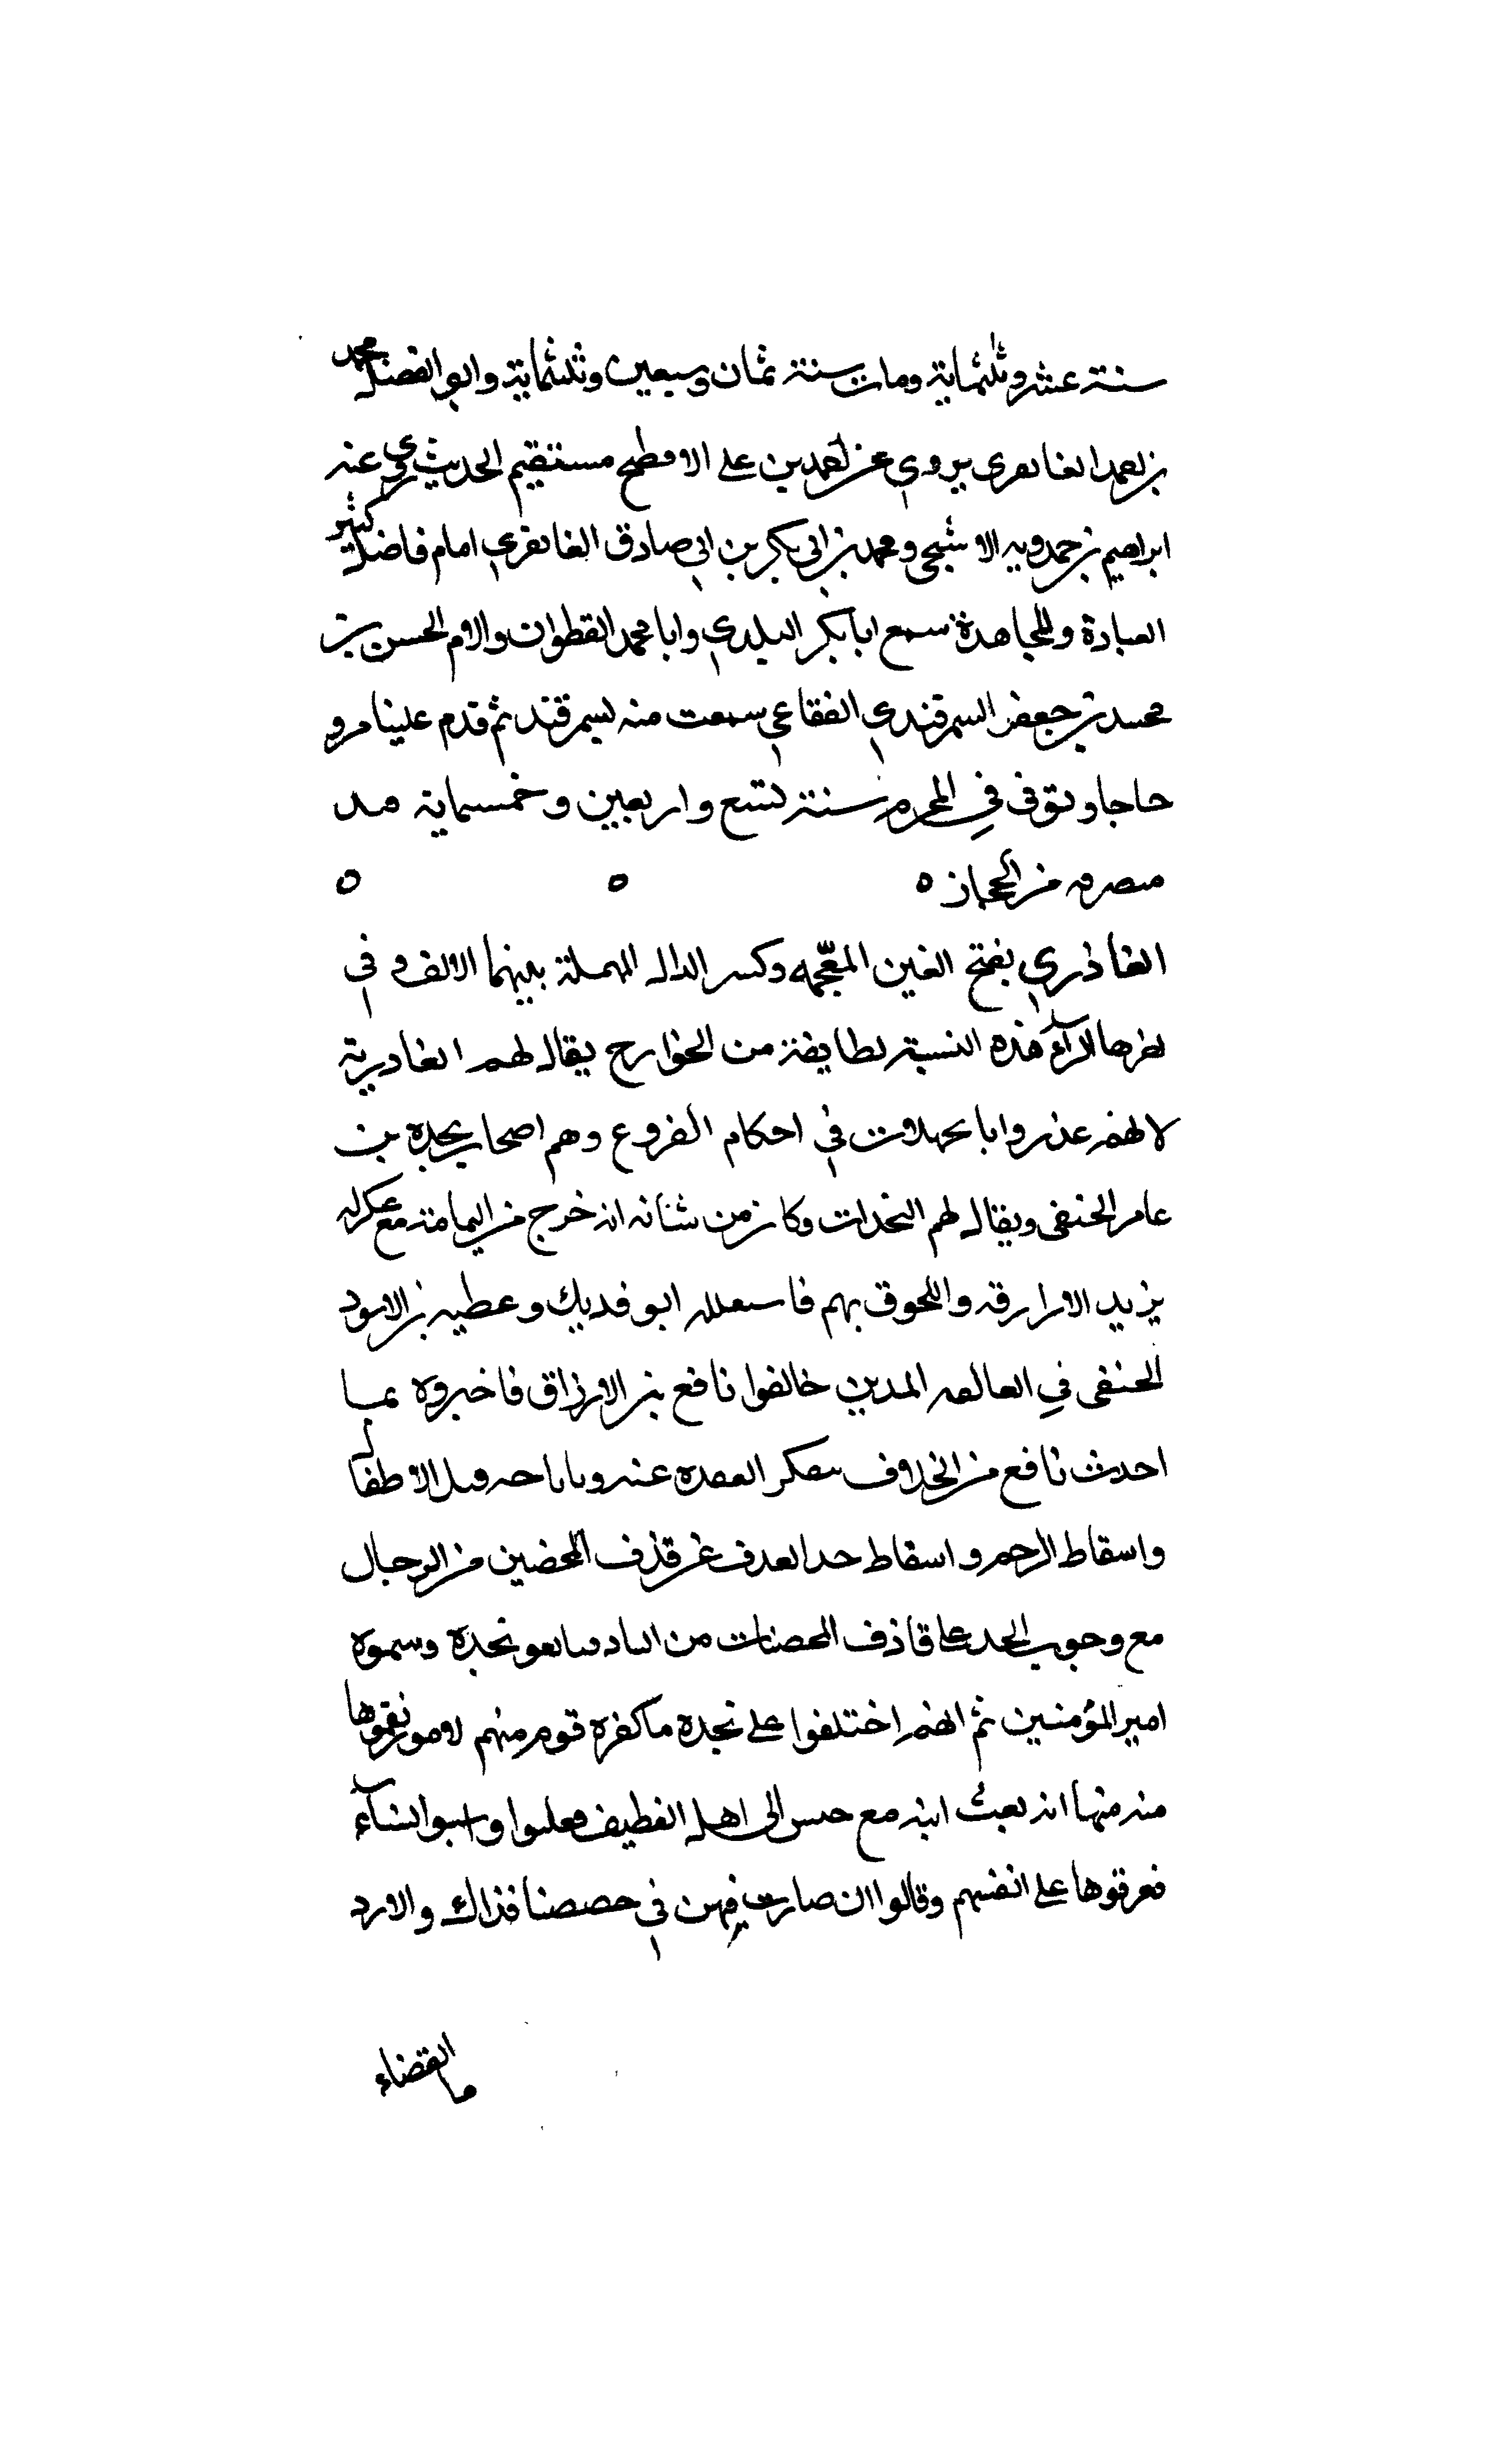 سنة عشر وثلثماية ومات سنة ثمان وسبعين وثلثماية وابو الفضل محمد
بن احمد الغانفرى يروى عن احمد بن على الافطح مستقيم الحديث روى عنه
ابراهيم بن حمدويه الاشبحى ومحمد بن ابى بكر بن ابى صادق الغانفرى امام فاضل كثير
العبادة والمجاهدة سمع ابا بكر البلدى وابا محمد القطوان والام الحسن بن
محمد بن جعفر السمرقندى الفقاعى سمعت منه بسمرقند ثم قدم علينا مرو
حاجا وتوفى في المحرم سنة تسع واربعين وخمسماية
منصرفه من الحجاز ٥ ٥ ٥
الغاذرى بفتح الغين المعجمه وكسر الدال المهملة بينهما الالف وفى
اخرها الرآء هذه النسبة لطايفة من الخوارج يقال لهم الغادرية
لانهم عذروا بالجهلات في احكام الفروع وهم اصحاب نجده بن
عامر الحنفى ويقال لهم النجدات وكان من شأنه انه خرج من اليمامة مع عسكره
يريد الازارقه واللحوق بهم فاستقبله ابو فديك وعطيه بن الاسود
الحنفى في الطائفه الذين خالفوا نافع بن الازراق فاخبروه بما
احدث نافع من الخلاف بتكفير القعده عنه وباباحه قتل الاطفال
واسقاط الرجم واسقاط حد القذف عن قذف المحصنين من الرجال
مع وجوب الحد على قاذف المحصنات من النساء فبايعو نجده وسموه
امير المؤمنين ثم انهم اختلفوا على نجدة فاكفره قوم منهم لامور نقموها
منه منها انه بعث ابنه مع جيش الى اهل القطيف فقتلوا واسبوا النسآء
فعرقوها على انفسهم وقالوا ان صارت فهن في حصصنا فذاك والارد
ما القضاء